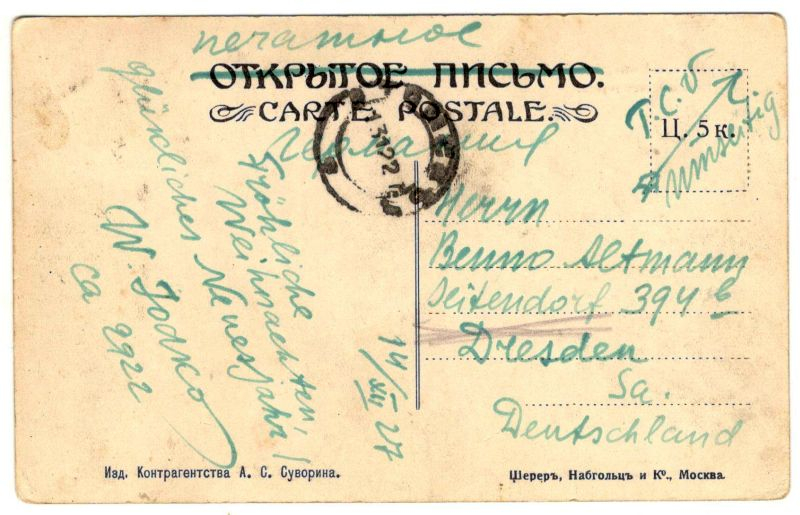 печатное
ОТКРЫТОЕ ПИСЬМО.
CARTE POSTALE.
Германия
Т.С.б
Ц. 5 к.
umseitig
Fröhliche
Weihnachten!
glückliches Neuesjahr!
W. Jodko
ca 2922
14/XII 27
Herrn
Benno Altmann
Seitendorf 394 b
Dresden
Sa.
Deutschland
Изд. Контрагентства А. С. Суворина.
Шереръ, Набгольцъ и Ко., Москва.